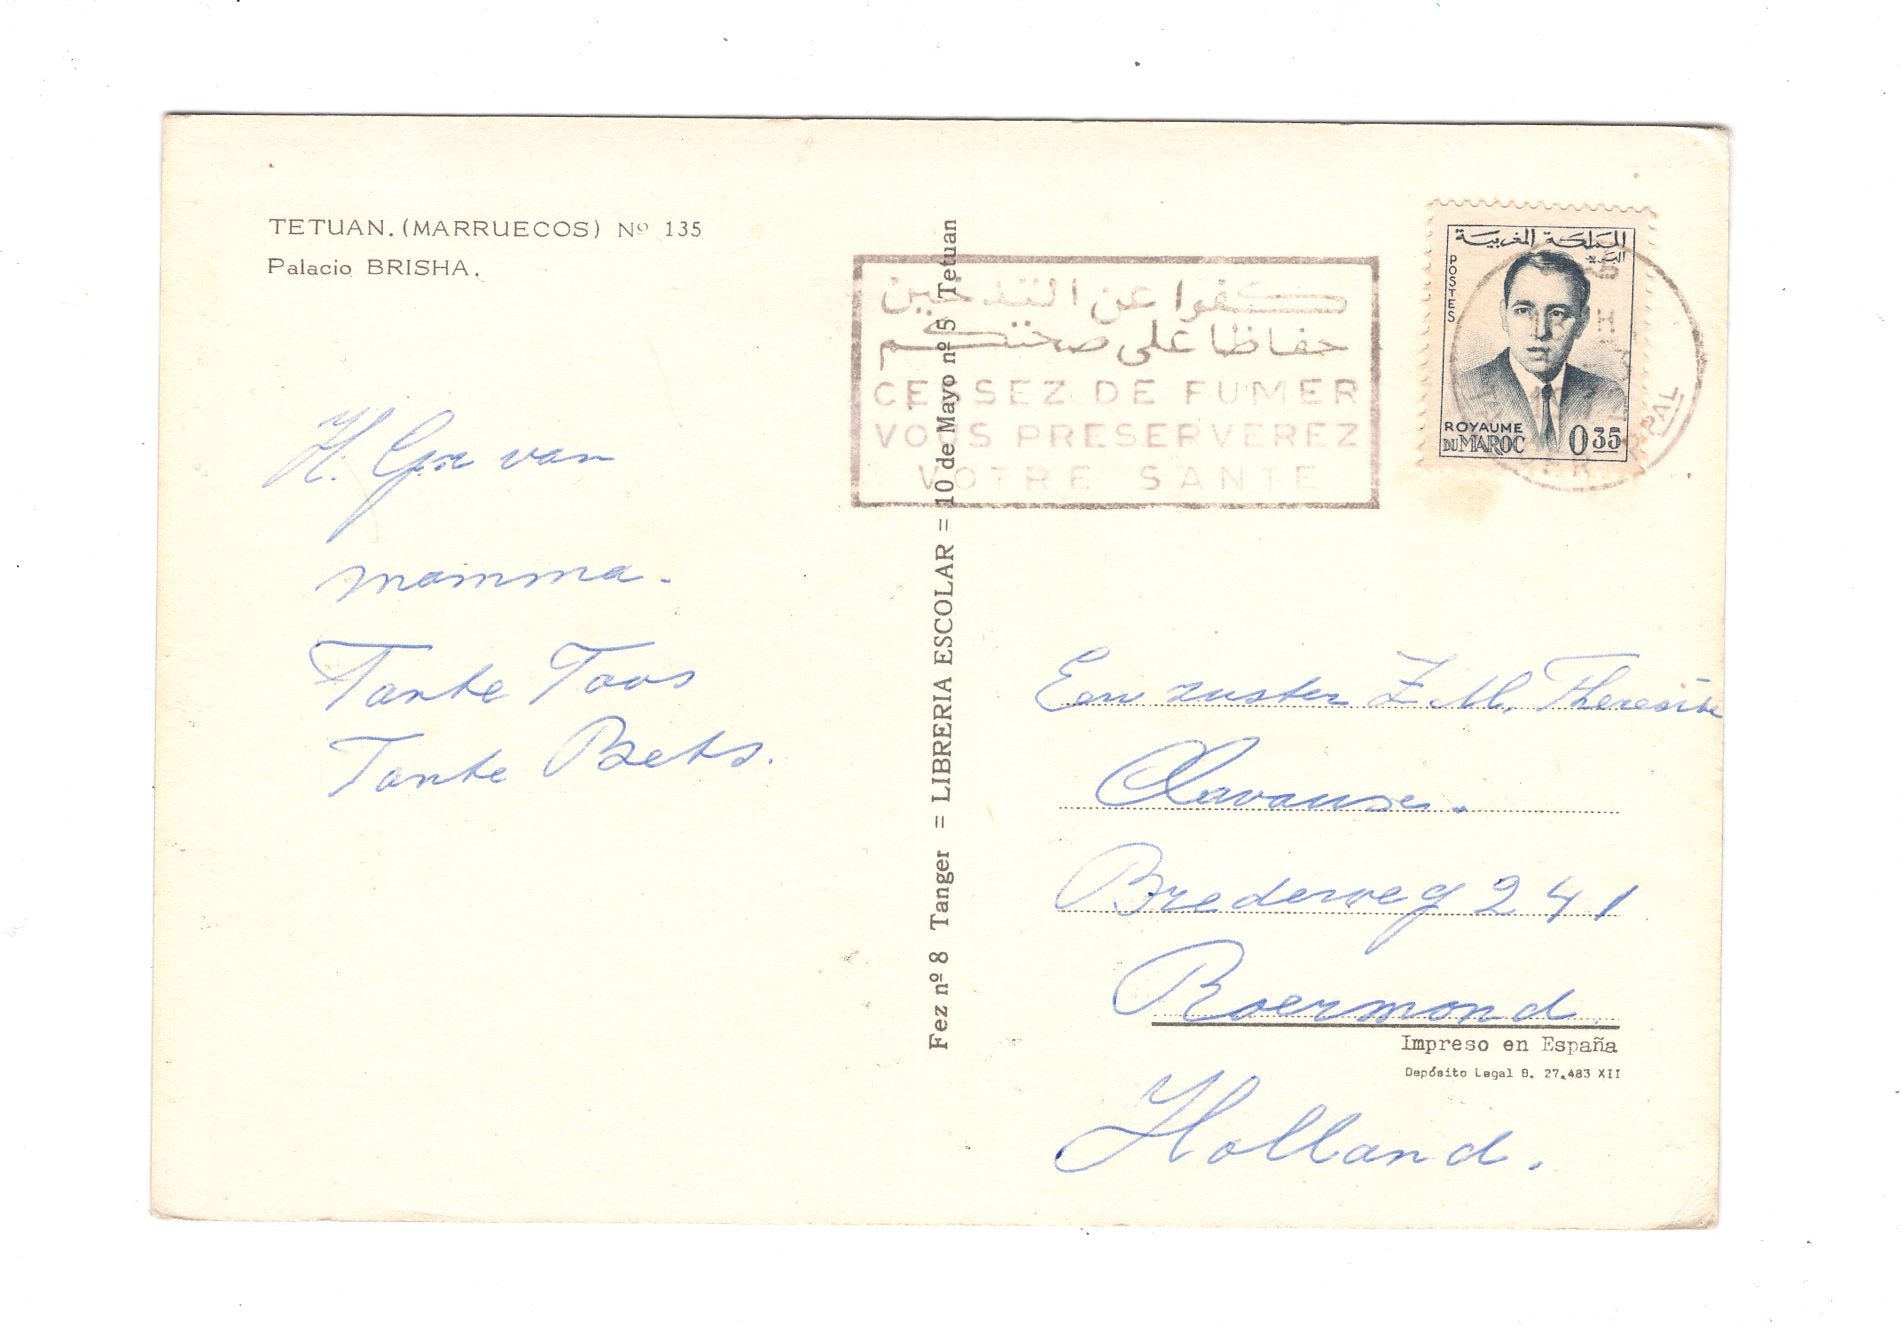 TETUAN. (MARRUECOS) Nº 135
Palacio BRISHA.
H. Gr. van
mamma.
Tante Toos
Tante Bets.
Fez nº 8 Tanger = LIBRERIA ESCOLAR = 10 de Mayo nº 5 Tetuan
كفوا عن التدخين
حفاظا على صحتكم
CESSEZ DE FUMER
VOUS PRESERVEREZ
VOTRE SANTE
المملكة المغربية
البريد
POSTES
ROYAUME
DU MAROC 0.35
PAL
Eerw zuster Z M. Theresine
Clavauxse.
Brederweg 241
Roermond.
Impreso en España
Depósito Legal B. 27.483 XII
Holland.